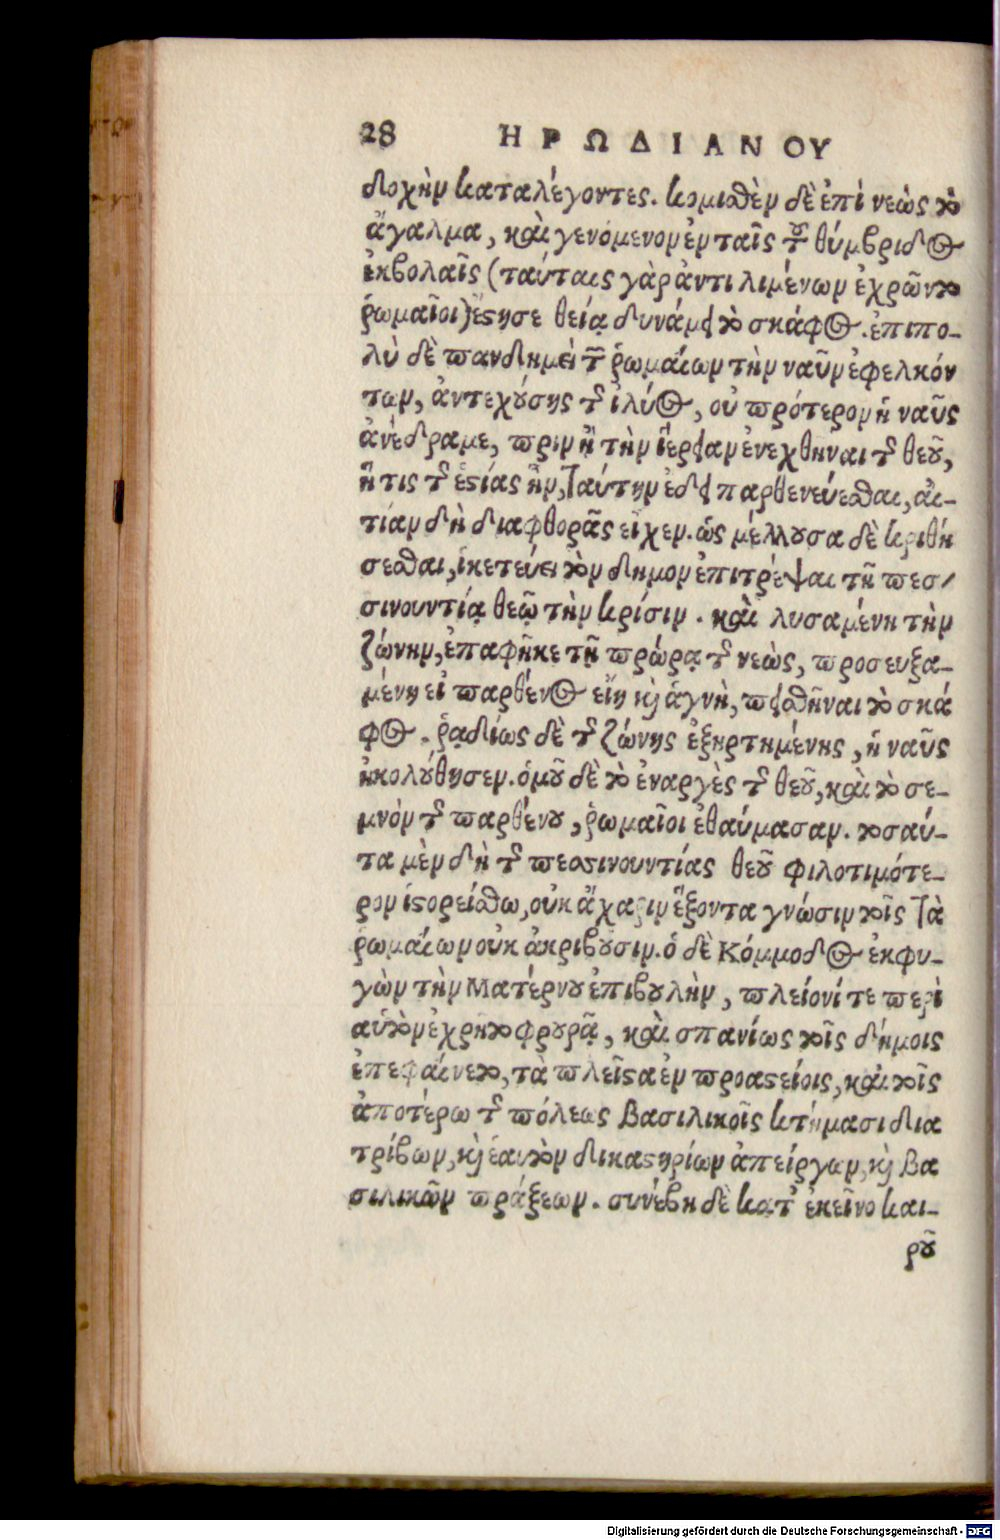 28 ΗΡΩΔΙΑΝΟΥ
δοχὴν καταλέγοντες. κομισθὲν δὲ ἐπὶ νεὼς τὸ
ἄγαλμα, καὶ γενόμενον ἐν ταῖς τοῦ θύμβριδος
ἐκβολαῖς (ταύταις γὰρ ἀντὶ λιμένων ἐχρῶντο
ῥωμαῖοι) ἔστησε θείᾳ δυνάμει τὸ σκάφος. ἐπιπο-
λὺ δὲ πανδημεὶ τῶν ῥωμαίων τὴν ναῦν ἐφελκόν
των, ἀντεχούσης τῆς ἰλύος, οὐ πρότερον ἡ ναῦς
ἀνέδραμε, πρὶν ἢ τὴν ἱέρειαν ἐνεχθῆναι τῆς θεοῦ,
ἥ τις τῆς ἑστίας ἦν, ταύτην ἔδει παρθενεύεσθαι, αἰ-
τίαν δὴ διαφθορᾶς εἶχεν. ὡς μέλλουσα δὲ κριθή
σεσθαι, ἱκετεύει τὸν δῆμον ἐπιτρέψαι τῇ πεσ-
σινουντίᾳ θεῷ τὴν κρίσιν. καὶ λυσαμένη τὴν
ζώνην, ἐπαφῆκε τῇ πρώρᾳ τῆς νεὼς, προσευξα-
μένη εἰ παρθένος εἴη καὶ ἁγνὴ, πεισθῆναι τὸ σκά
φος. ῥᾳδίως δὲ τῆς ζώνης ἐξηρτημένης, ἡ ναῦς
ἠκολούθησεν. ὁμοῦ δὲ τὸ ἐναργὲς τῆς θεοῦ, καὶ τὸ σε-
μνὸν τῆς παρθένου, ῥωμαῖοι ἐθαύμασαν. τοσαύ-
τα μὲν δὴ τῆς πεσσινουντίας θεοῦ φιλοτιμότε-
ρον ἱστορείσθω, οὐκ ἄχαριν ἕξοντα γνώσιν τοῖς τὰ
ῥωμαίων οὐκ ἀκριβοῦσιν. ὁ δὲ Κόμμοδος ἐκφυ-
γὼν τὴν Ματέρνου ἐπιβουλὴν, πλείονί τε περὶ
αὑτὸν ἐχρῆτο φρουρᾷ, καὶ σπανίως τοῖς δήμοις
ἐπεφαίνετο, τὰ πλεῖστα ἐν προαστείοις, καὶ τοῖς
ἀποτέρω τῆς πόλεως βασιλικοῖς κτήμασι δια
τρίβων, καὶ ἑαυτὸν δικαστηρίων ἀπείργων, καὶ βα
σιλικῶν πράξεων. συνέβη δὲ κατ' ἐκεῖνο και-
ροῦ
Digitalisierung gefördert durch die Deutsche Forschungsgemeinschaft - DFG